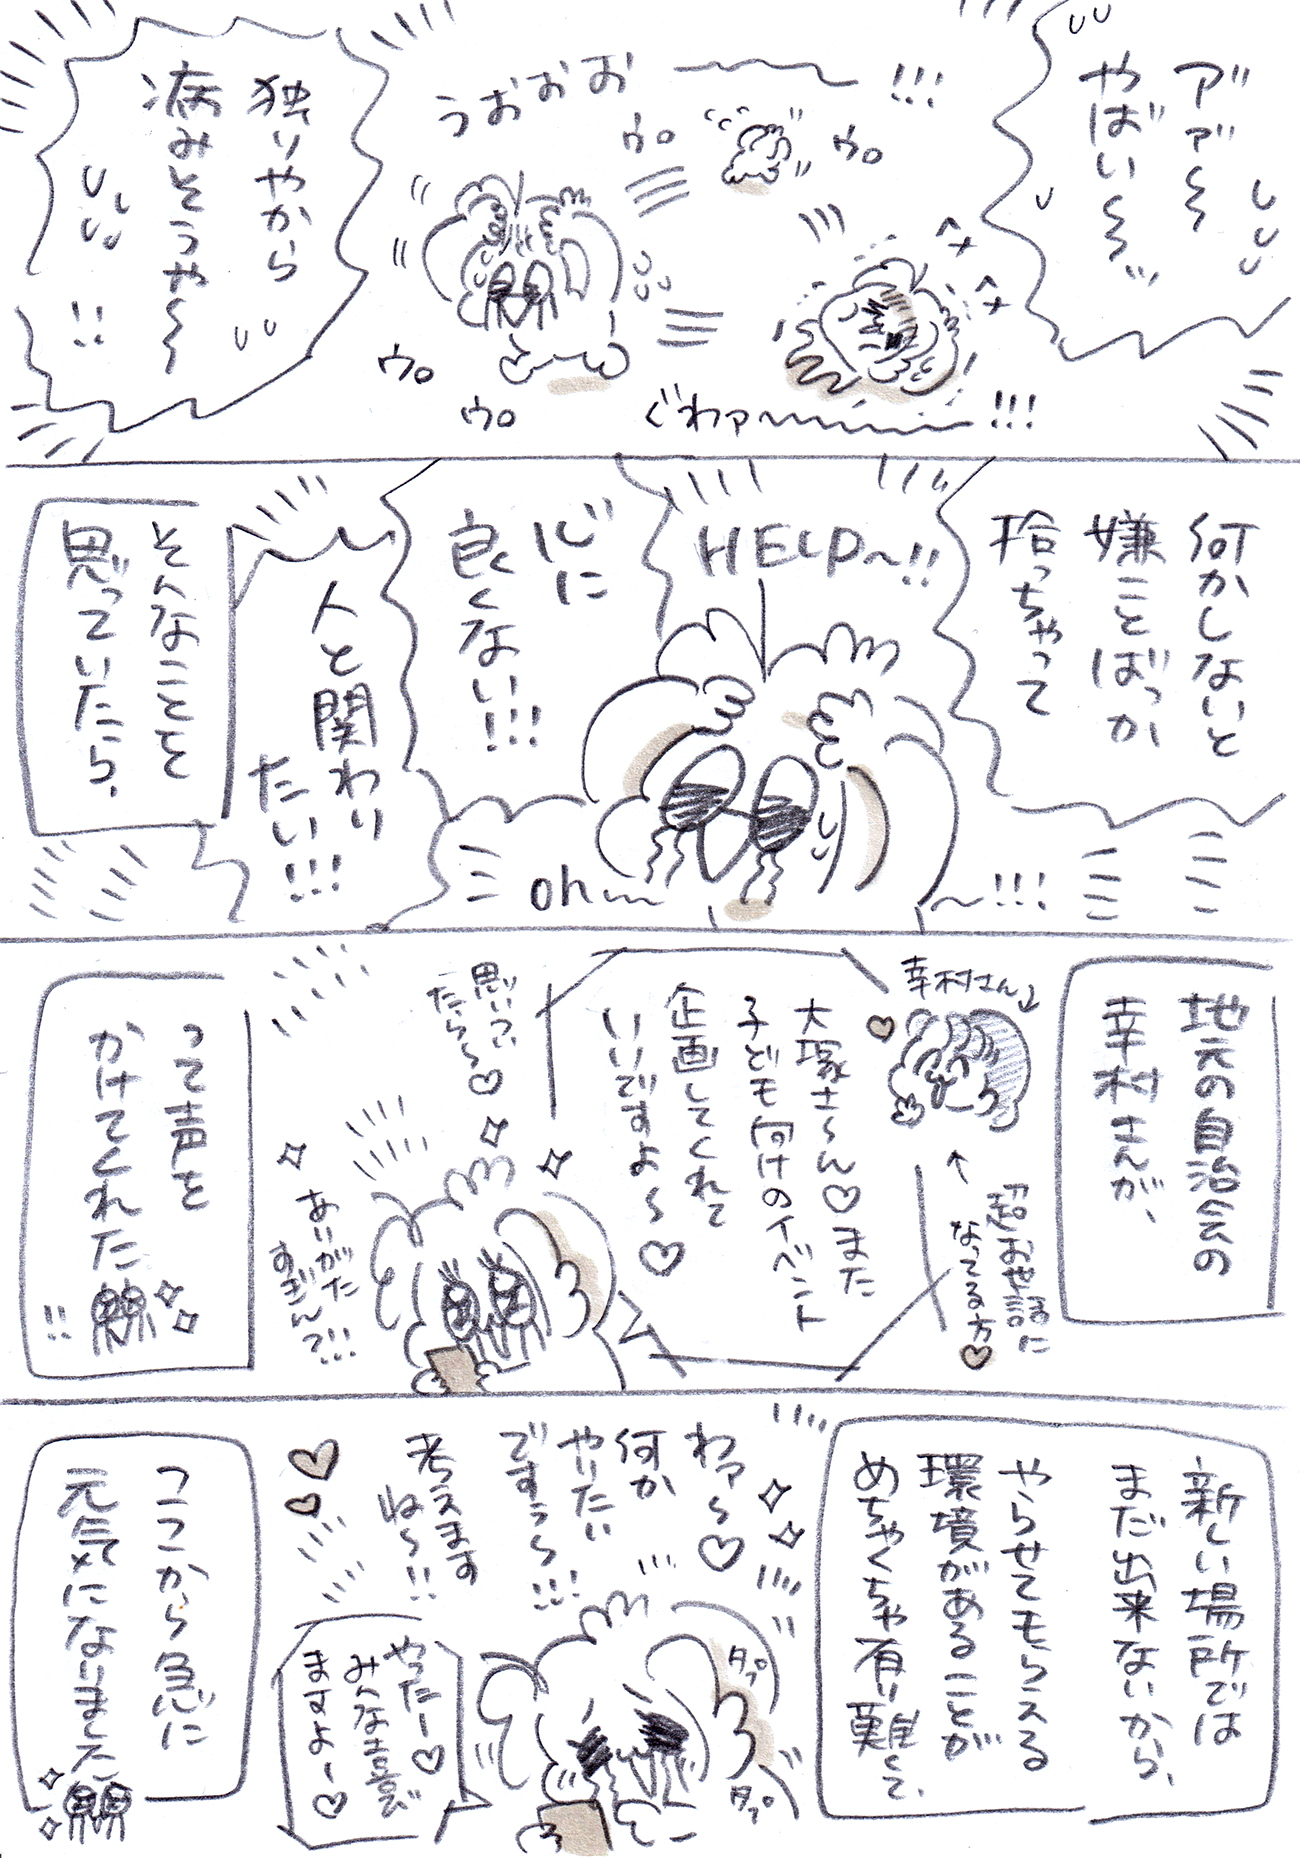 アア゛〜
やばい〜〜
うおおお〜〜!!!
ウロ
ウロ
ヘナ
ヘナ
ウロ
ウロ
ぐわァ〜〜〜!!!
独りやから
病みそうや〜〜
!!
何かしないと
嫌ことばっか
拾っちゃって
HELP〜!!
心に
良くない!!!
oh〜
〜!!!
人と関わり
たい!!!
そんなことを
思っていたら、
地元の自治会の
幸村さんが、
幸村さん
超お世話に
なってる方♡
大塚さ〜ん♡また
子ども向けのイベント
企画してくれて
いいですよ〜♡
思いつい
たら〜♡
ありがた
すぎんて!!!
って声を
かけてくれた
!!
新しい場所では
まだ出来ないから、
やらせてもらえる
環境があることが
めちゃくちゃ有り難くて、
わァ〜♡
何か
やりたい
ですぅ〜!!!
考えます
ね〜!!
タプ
タプ
やったー♡
みんな喜び
ますよー♡
ココから急に
元気になりました